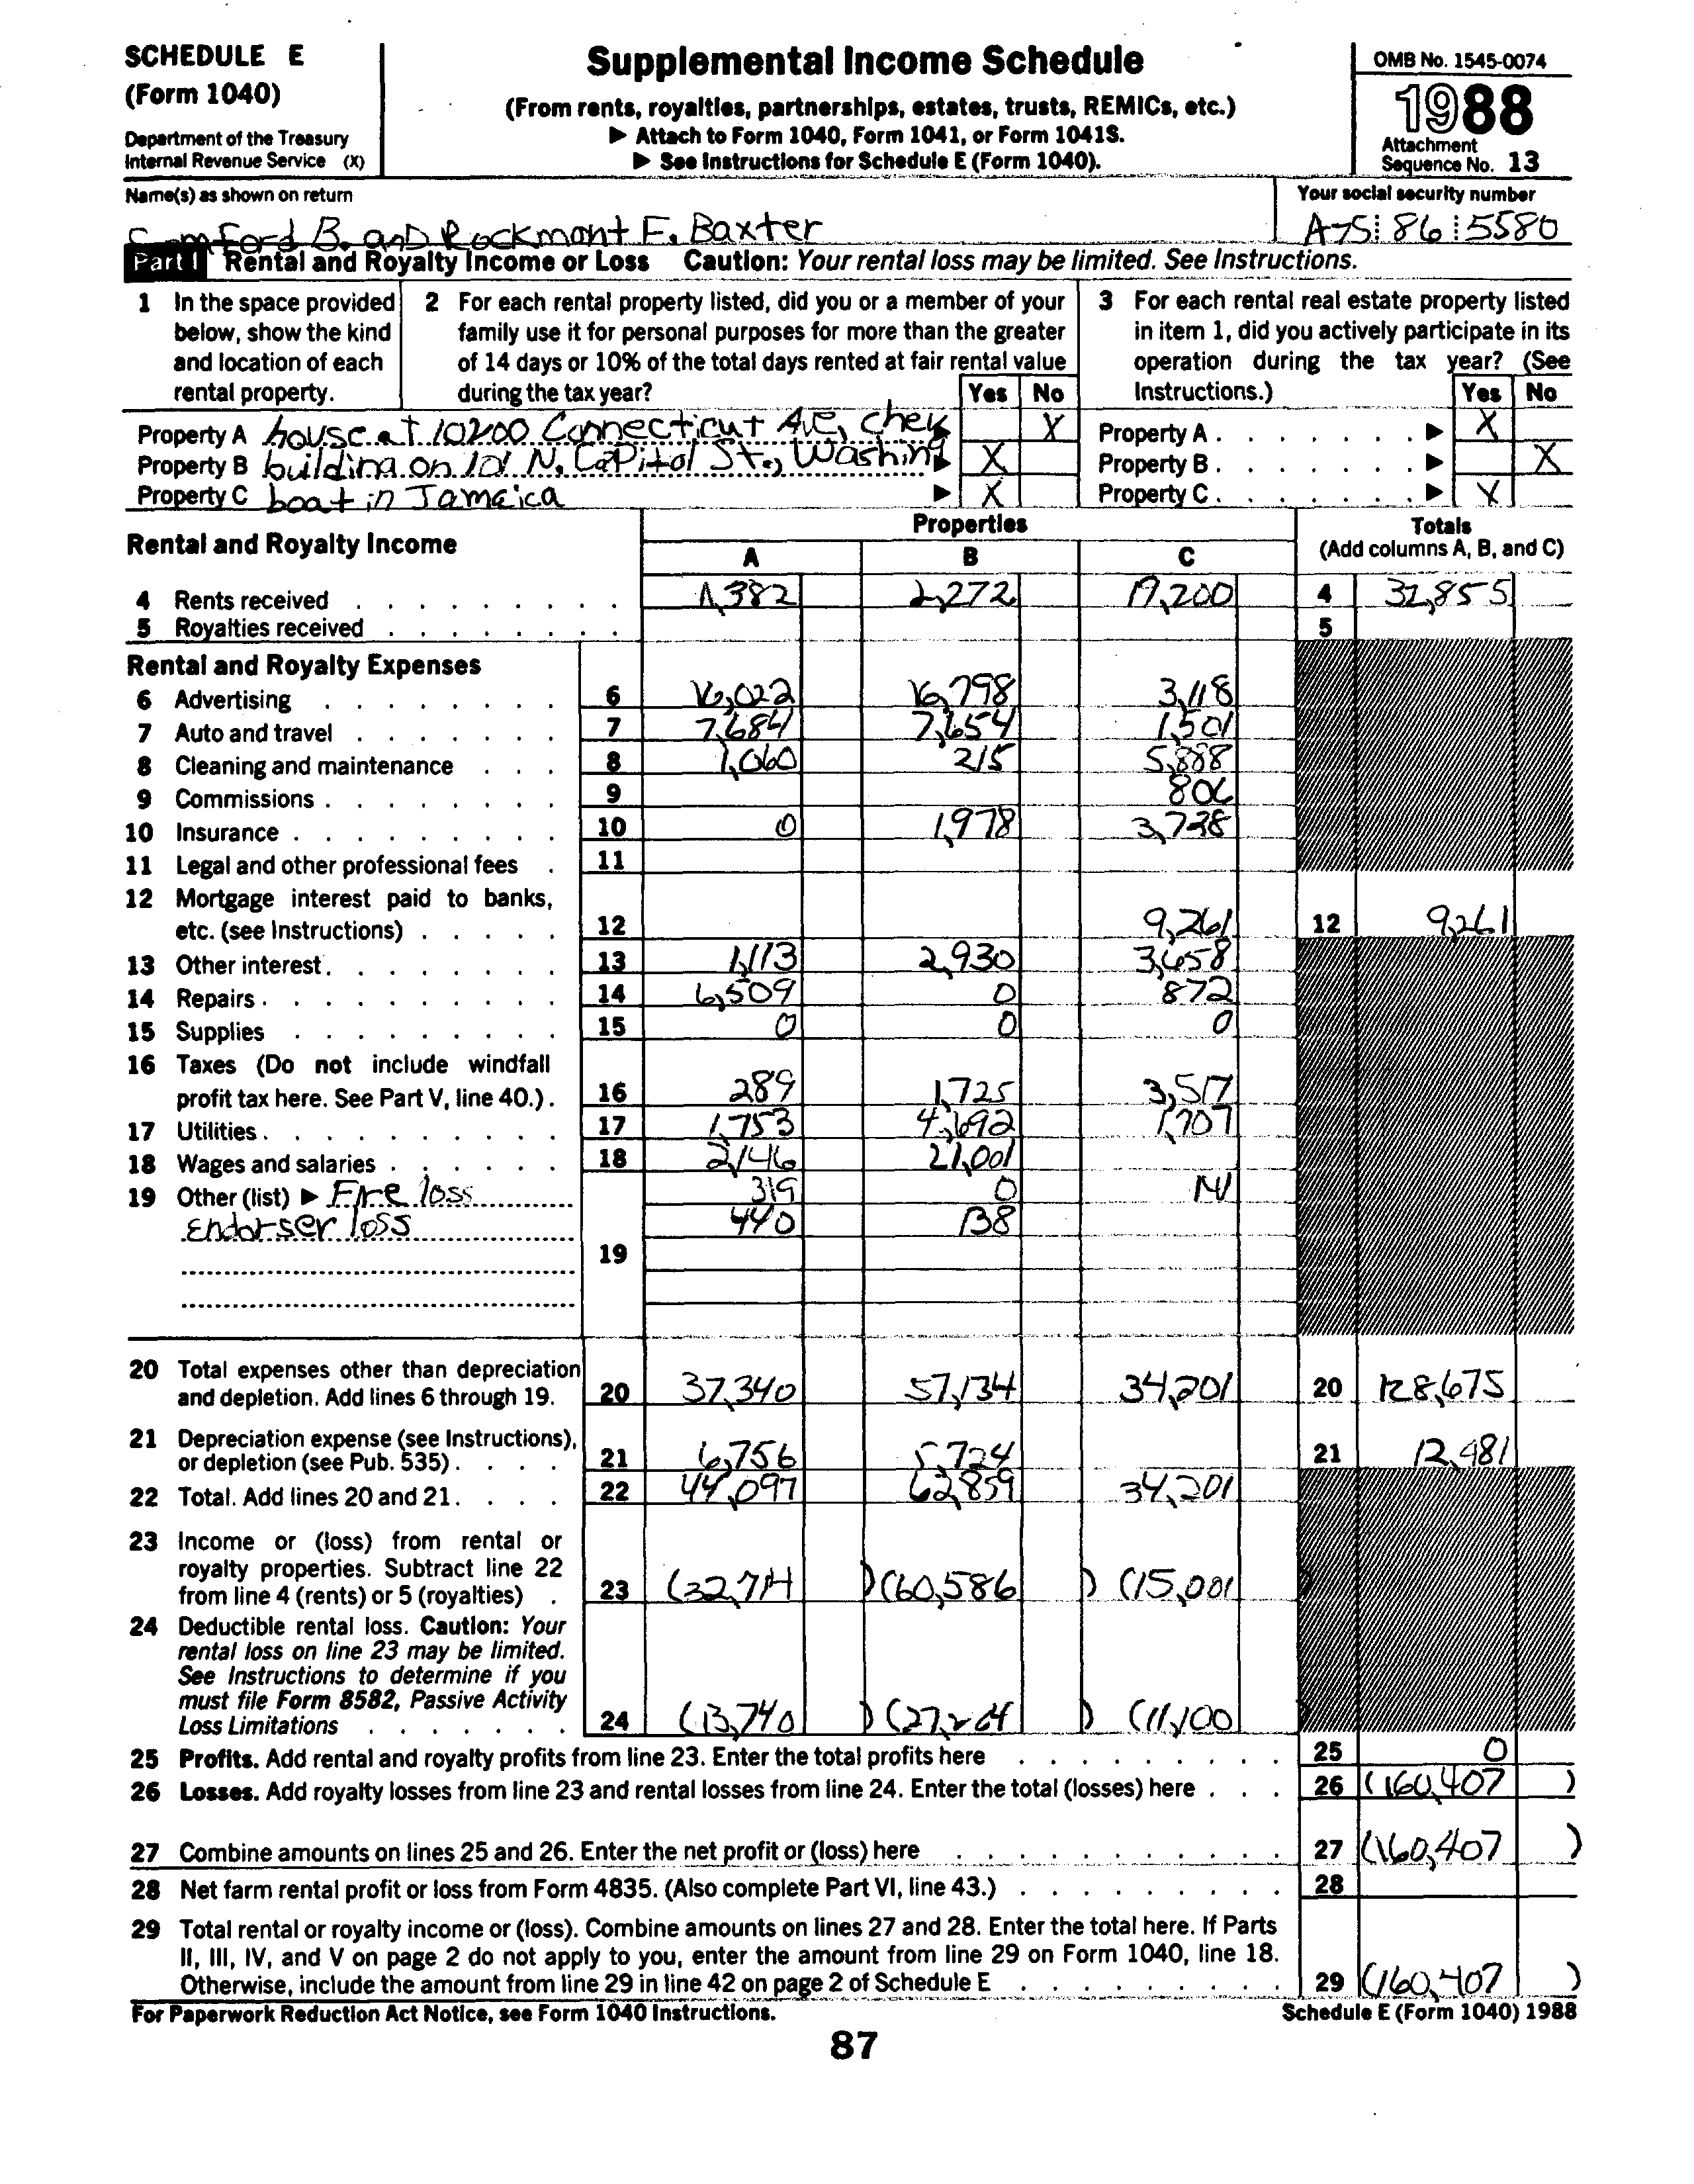 SCHEDULE E
(Form 1040)
Department of the Treasury
Internal Revenue Service (X)
Supplemental Income Schedule
(From rents, royalties, partnerships, estates, trusts, REMICs, etc.)
▶ Attach to Form 1040, Form 1041, or Form 1041S.
▶ See Instructions for Schedule E (Form 1040).
OMB No. 1545-0074
1988
Attachment
Sequence No. 13
Name(s) as shown on return
Your social security number
B. and Rockmont F. Baxter
A75 86 5580
Part I Rental and Royalty Income or Loss Caution: Your rental loss may be limited. See Instructions.
1 In the space provided below, show the kind and location of each rental property.
2 For each rental property listed, did you or a member of your family use it for personal purposes for more than the greater of 14 days or 10% of the total days rented at fair rental value during the tax year? Yes No
3 For each rental real estate property listed in item 1, did you actively participate in its operation during the tax year? (See Instructions.) Yes No
Property A house at 10200 Connecticut Ave, chev ▶ X Property A . . . . . . . ▶ X
Property B building on 101 N. Capitol St., Washin ▶ X Property B . . . . . . . ▶ X
Property C boat in Jamaica ▶ X Property C . . . . . . . ▶ X
Rental and Royalty Income
Properties
A B C
Totals
(Add columns A, B, and C)
4 Rents received 2,272 19,200 4 32,855
5 Royalties received 5
Rental and Royalty Expenses
6 Advertising 6 16,022 16,798 3,118
7 Auto and travel 7 7,684 7,654 1,501
8 Cleaning and maintenance 8 1,060 215 5,888
9 Commissions 9 806
10 Insurance 10 0 1,978 3,728
11 Legal and other professional fees 11
12 Mortgage interest paid to banks,
etc. (see Instructions) 12 9,261 12 9,261
13 Other interest 13 1,113 2,930 3,658
14 Repairs 14 6,509 0 872
15 Supplies 15 0 0 0
16 Taxes (Do not include windfall
profit tax here. See Part V, line 40.) 16 289 1,725 3,517
17 Utilities 17 1,753 4,692 1,707
18 Wages and salaries 18 2,146 21,001
19 Other (list) ▶ Fire loss 319 0 141
Endorser loss 440 138
19
20 Total expenses other than depreciation
and depletion. Add lines 6 through 19. 20 37,340 57,134 34,201 20 128,675
21 Depreciation expense (see Instructions),
or depletion (see Pub. 535) 21 6,756 5,724 21 12,481
22 Total. Add lines 20 and 21 22 44,097 62,859 34,201
23 Income or (loss) from rental or
royalty properties. Subtract line 22
from line 4 (rents) or 5 (royalties) 23 (32,714) (60,586) (15,001)
24 Deductible rental loss. Caution: Your
rental loss on line 23 may be limited.
See Instructions to determine if you
must file Form 8582, Passive Activity
Loss Limitations 24 (13,740) (27,264) (11,100)
25 Profits. Add rental and royalty profits from line 23. Enter the total profits here 25 0
26 Losses. Add royalty losses from line 23 and rental losses from line 24. Enter the total (losses) here 26 (160,407)
27 Combine amounts on lines 25 and 26. Enter the net profit or (loss) here 27 (160,407)
28 Net farm rental profit or loss from Form 4835. (Also complete Part VI, line 43.) 28
29 Total rental or royalty income or (loss). Combine amounts on lines 27 and 28. Enter the total here. If Parts
II, III, IV, and V on page 2 do not apply to you, enter the amount from line 29 on Form 1040, line 18.
Otherwise, include the amount from line 29 in line 42 on page 2 of Schedule E 29 (160,407)
For Paperwork Reduction Act Notice, see Form 1040 Instructions.
Schedule E (Form 1040) 1988
87